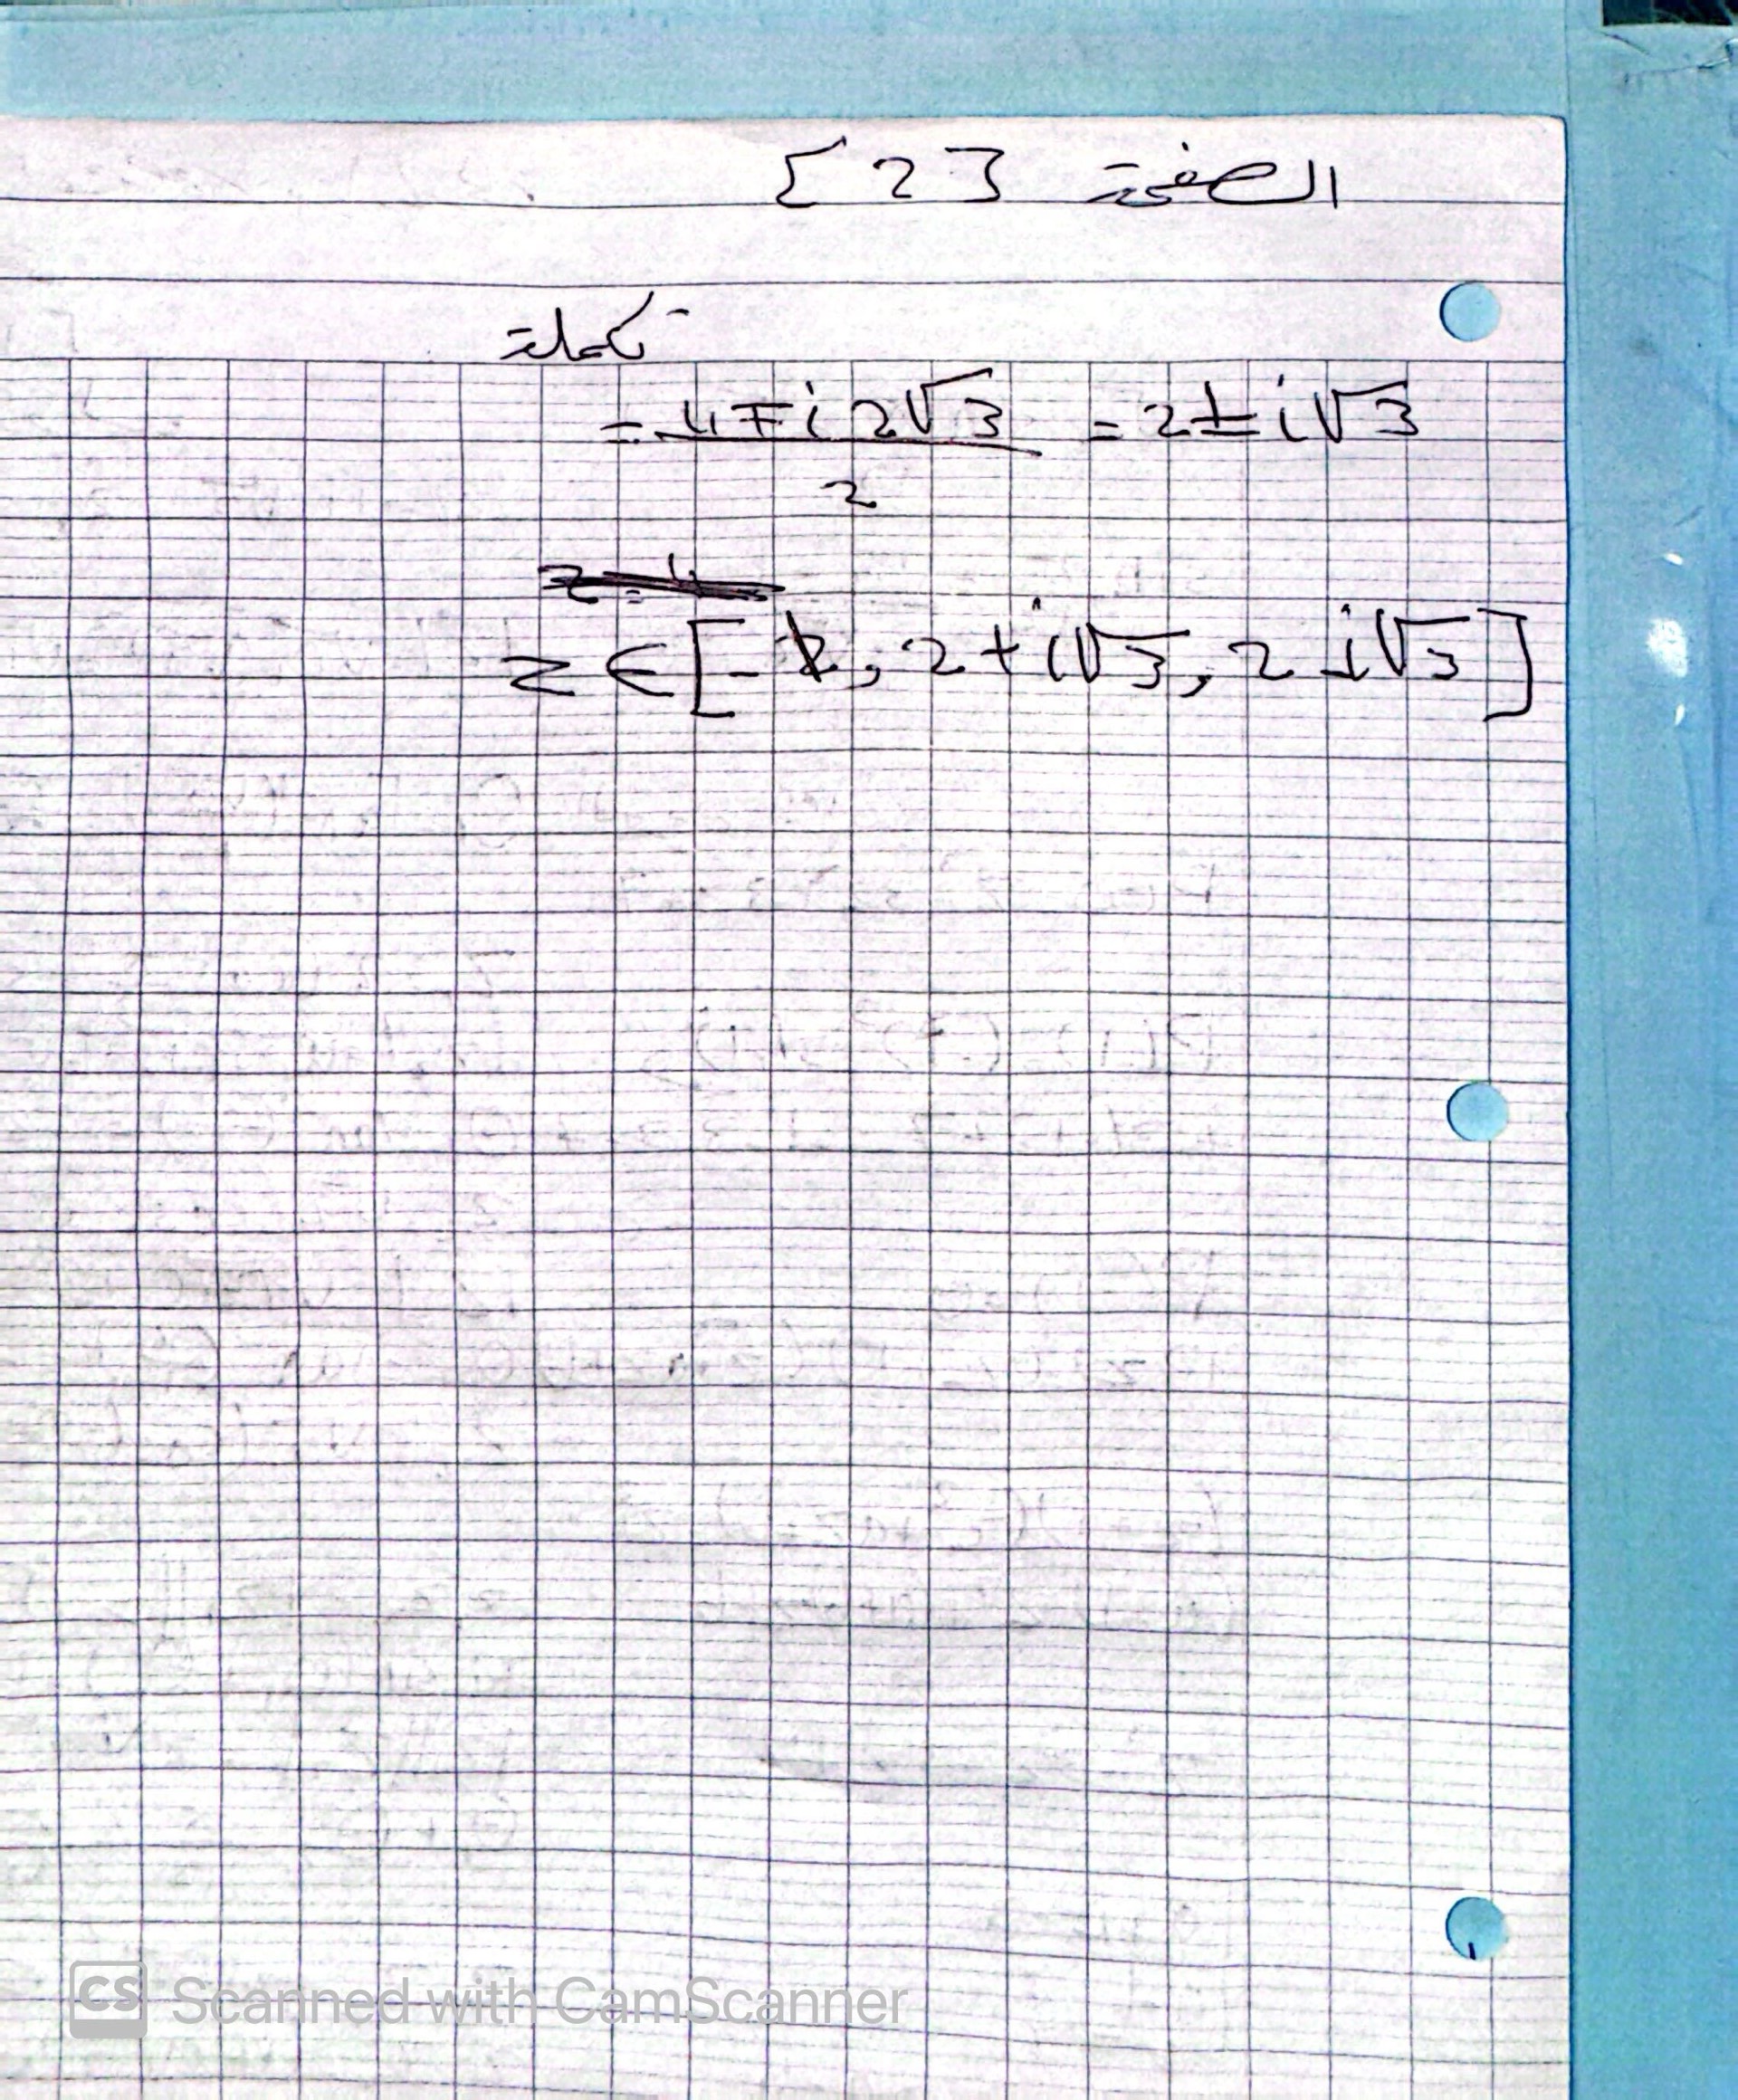 الصفحة [2]
تكملة
= 4 ∓ i 2√3 / 2 = 2 ± i√3
z ∈ [-1, 2 + i√3, 2 - i√3]
CS Scanned with CamScanner